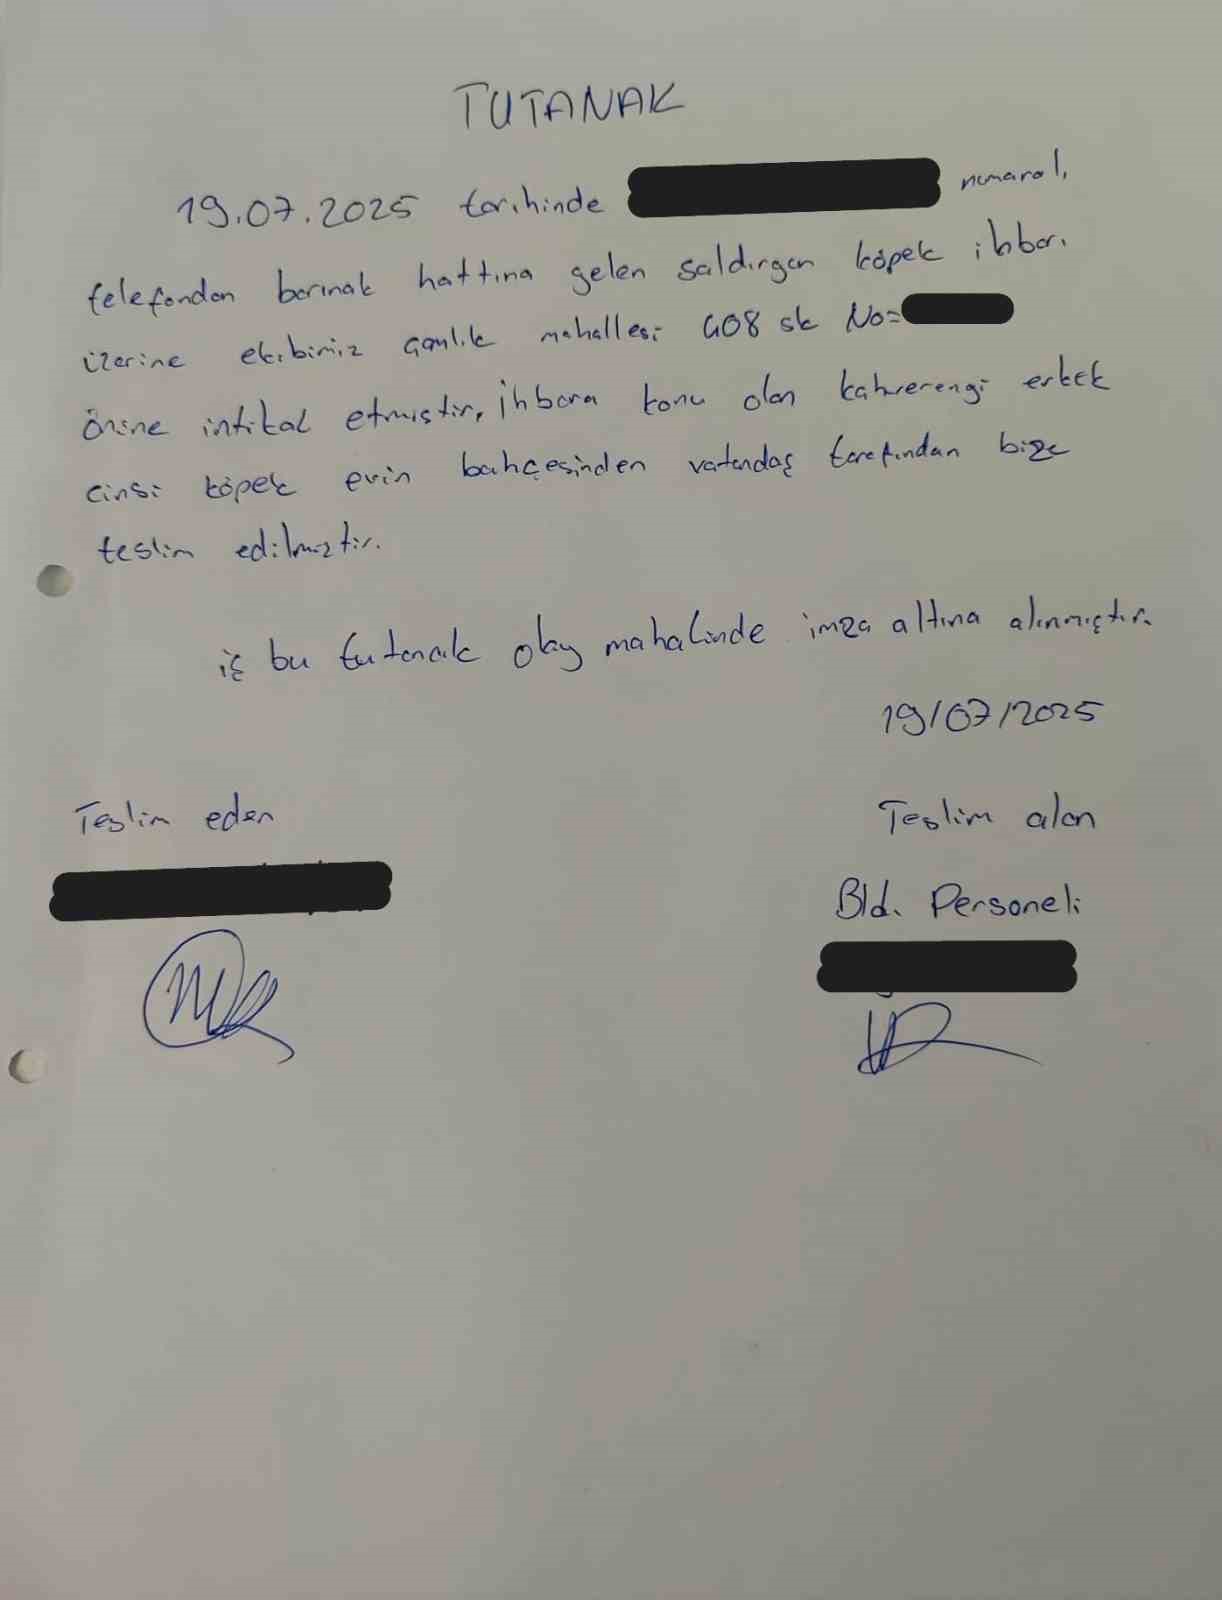 TUTANAK
19.07.2025 tarihinde numaralı
telefondan barınak hattına gelen saldırgan köpek ihbarı
üzerine ekibimiz çamlık mahallesi 408 sk No=
önüne intikal etmiştir, ihbara konu olan kahverengi erkek
cinsi köpek evin bahçesinden vatandaş tarafından bize
teslim edilmiştir.
iş bu tutanak olay mahalinde imza altına alınmıştır.
19/07/2025
Teslim eden
Teslim alan
Bld. Personeli